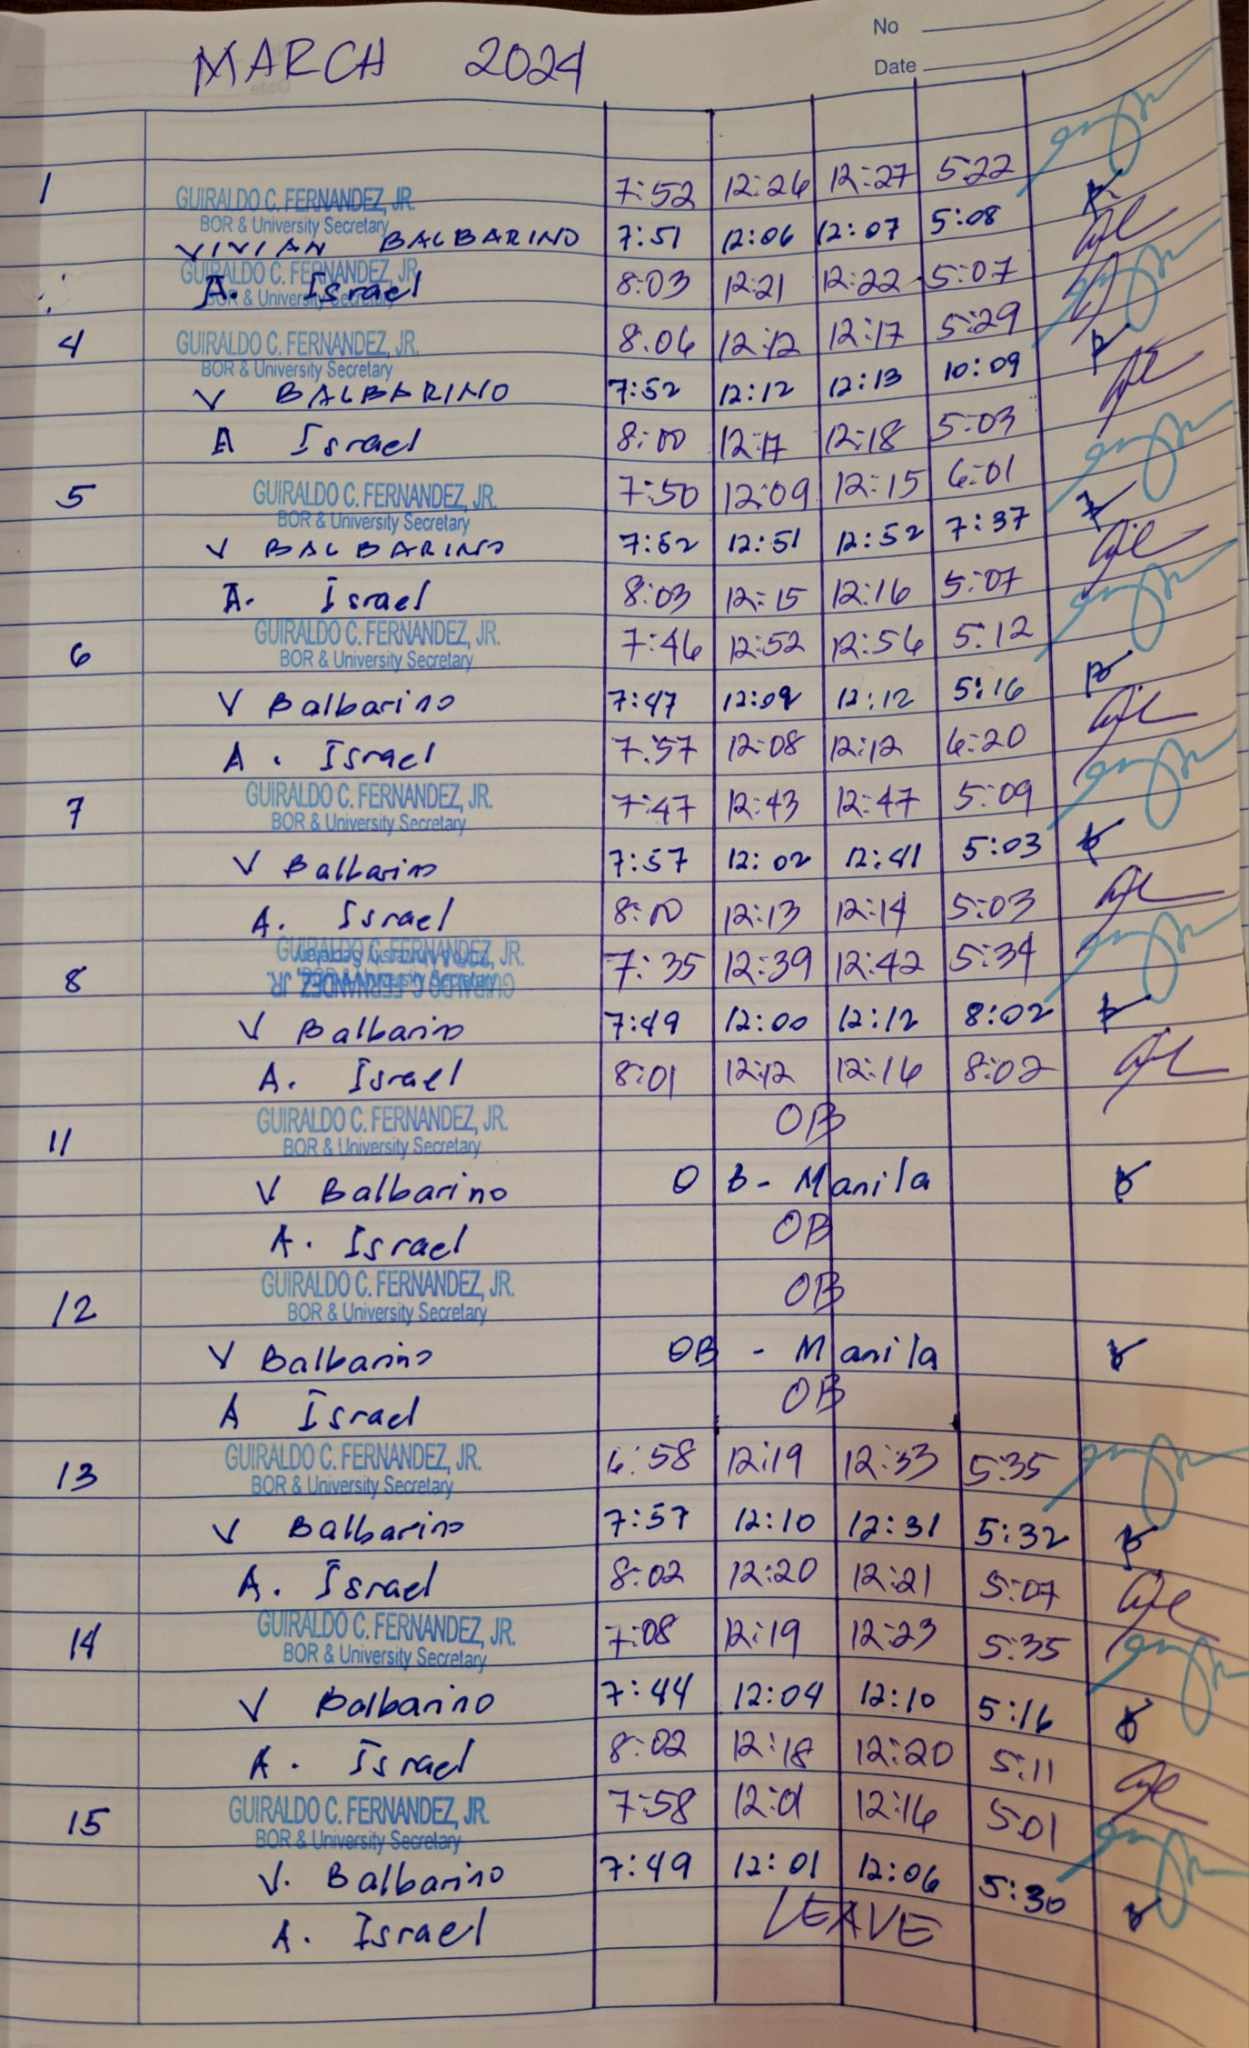 No
Date
MARCH 2024
1 GUIRALDO C. FERNANDEZ, JR. 7:52 12:26 12:27 5:22
BOR & University Secretary
VIVIAN BALBARINO 7:51 12:06 12:07 5:08
GUIRALDO C. FERNANDEZ, JR.
BOR & University Secretary
A. Israel 8:03 12:21 12:22 5:07
4 GUIRALDO C. FERNANDEZ, JR. 8:06 12:12 12:17 5:29
BOR & University Secretary
V BALBARINO 7:52 12:12 12:13 10:09
A Israel 8:00 12:17 12:18 5:03
5 GUIRALDO C. FERNANDEZ, JR. 7:50 12:09 12:15 6:01
BOR & University Secretary
V BALBARINO 7:52 12:51 12:52 7:37
A. Israel 8:03 12:15 12:16 5:07
6 GUIRALDO C. FERNANDEZ, JR. 7:46 12:52 12:56 5:12
BOR & University Secretary
V Balbarino 7:47 12:09 12:12 5:16
A. Israel 7:57 12:08 12:12 6:20
7 GUIRALDO C. FERNANDEZ, JR. 7:47 12:43 12:47 5:09
BOR & University Secretary
V Balbarino 7:57 12:02 12:41 5:03
A. Israel 8:00 12:13 12:14 5:03
8 GUIRALDO C. FERNANDEZ, JR. 7:35 12:39 12:42 5:34
GUIRALDO C. FERNANDEZ, JR
V Balbarino 7:49 12:00 12:12 8:02
A. Israel 8:01 12:12 12:16 8:02
11 GUIRALDO C. FERNANDEZ, JR. OB
BOR & University Secretary
V Balbarino OB - Manila
A. Israel OB
12 GUIRALDO C. FERNANDEZ, JR. OB
BOR & University Secretary
V Balbarino OB - Manila
A Israel OB
13 GUIRALDO C. FERNANDEZ, JR. 6:58 12:19 12:33 5:35
BOR & University Secretary
V Balbarino 7:57 12:10 12:31 5:32
A. Israel 8:02 12:20 12:21 5:07
14 GUIRALDO C. FERNANDEZ, JR. 7:08 12:19 12:23 5:35
BOR & University Secretary
V Balbarino 7:44 12:04 12:10 5:16
A. Israel 8:02 12:18 12:20 5:11
15 GUIRALDO C. FERNANDEZ, JR. 7:58 12:01 12:16 5:01
BOR & University Secretary
V. Balbarino 7:49 12:01 12:06 5:30
A. Israel LEAVE